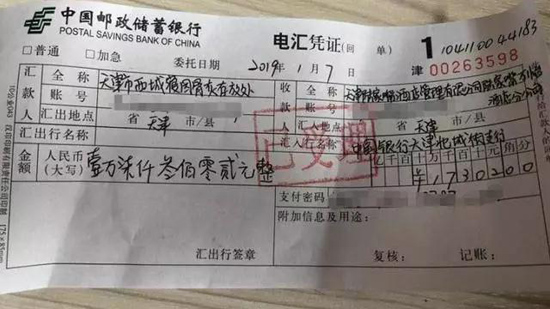 中国邮政储蓄银行
POSTAL SAVINGS BANK OF CHINA
电汇凭证(回 单) 1 1041100 44183
□普通 □加急 委托日期 2019年1月7日 津 00263598
汇款人 全称 天津市西城寝园骨灰存放处
收款人 全称 天津
账号
账号
汇出地点 省 天津 市/县
汇入地点 省 天津 市/县
汇出行名称
汇入行名称 中国银行天津北城街支行
已受理
金额 人民币(大写) 壹万柒仟叁佰零贰元整
千百十万千百十元角分
¥1730200
支付密码
附加信息及用途:
汇出行签章
复核: 记账:
175×85mm